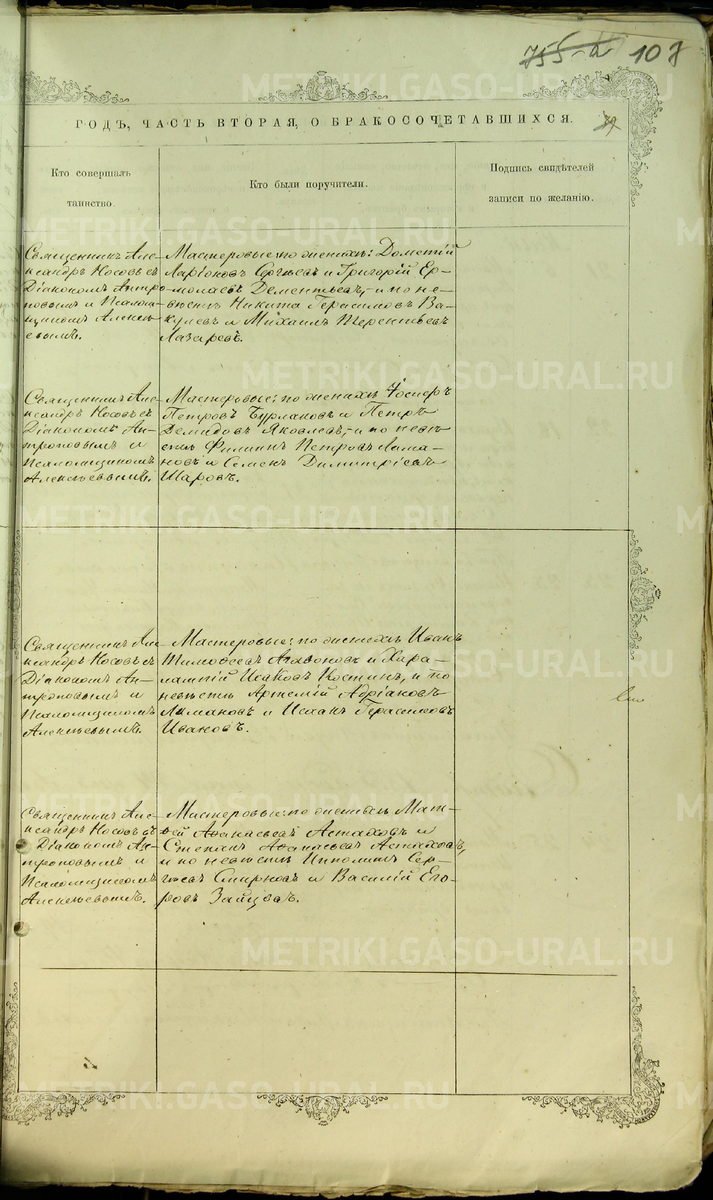 755-а 107
ГОДЪ, ЧАСТЬ ВТОРАЯ, О БРАКОСОЧЕТАВШИХСЯ.
Кто совершалъ
таинство.
Кто были поручители.
Подпись свидѣтелей
записи по желанію.
Священникъ Але-
ксандръ Носовъ съ
Діакономъ Антро
повымъ и Псалом-
щикомъ Алексѣ-
евымъ.
Мастеровые: по женихѣ: Дометій
Ларіоновъ Сергѣевъ и Григорій Ер-
молаевъ Дементьевъ, и по не-
вѣстѣ Никита Герасимовъ Ва-
кулевъ и Михаилъ Терентьевъ
Лазаревъ.
Священникъ Але-
ксандръ Носовъ съ
Діакономъ Ан-
троповымъ и
Псаломщикомъ
Алексѣевымъ.
Мастеровые: по женихѣ Іосифъ
Петровъ Бурлаковъ и Петръ
Демидовъ Яковлевъ, и по невѣ-
стѣ Филипъ Петровъ Лима-
новъ и Семенъ Димитріевъ
Шаровъ.
Священникъ Але-
ксандръ Носовъ съ
Діакономъ Ан-
троповымъ и
Псаломщикомъ
Алексѣевымъ.
Мастеровые: по женихѣ Иванъ
Тимофеевъ Агафоновъ и Хара-
лампій Исаковъ Костинъ, и по
невѣстѣ Артемій Адріановъ
Лимановъ и Исаакъ Герасимовъ
Ивановъ.
Священникъ Але-
ксандръ Носовъ съ
Діакономъ Ан-
троповымъ и
Псаломщикомъ
Алексѣевымъ.
Мастеровые: по женихѣ Мат-
вѣй Афанасьевъ Астаховъ и
Степанъ Афанасьевъ Астаховъ,
и по невѣстѣ Ипполитъ Сер-
гѣевъ Смирновъ и Василій Его-
ровъ Зайцевъ.
METRIKI.GASO-URAL.RU